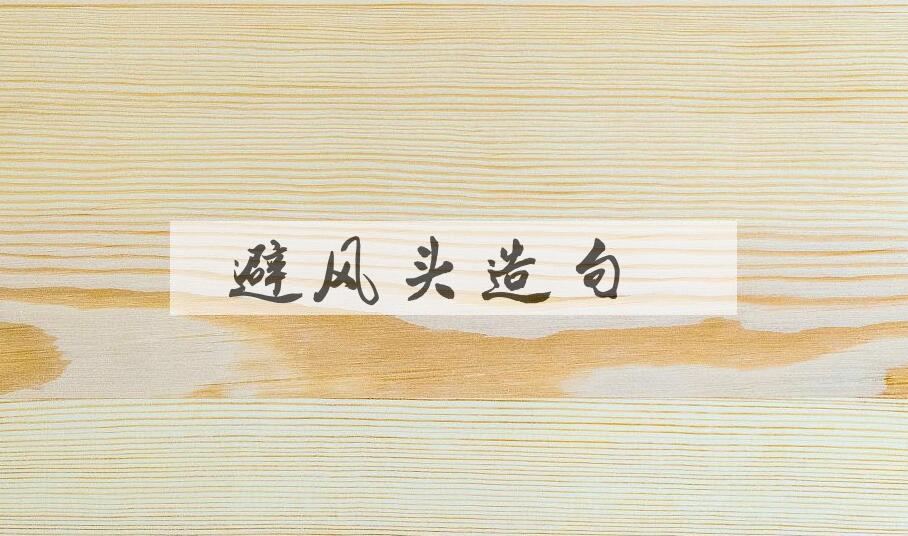 避风头造句